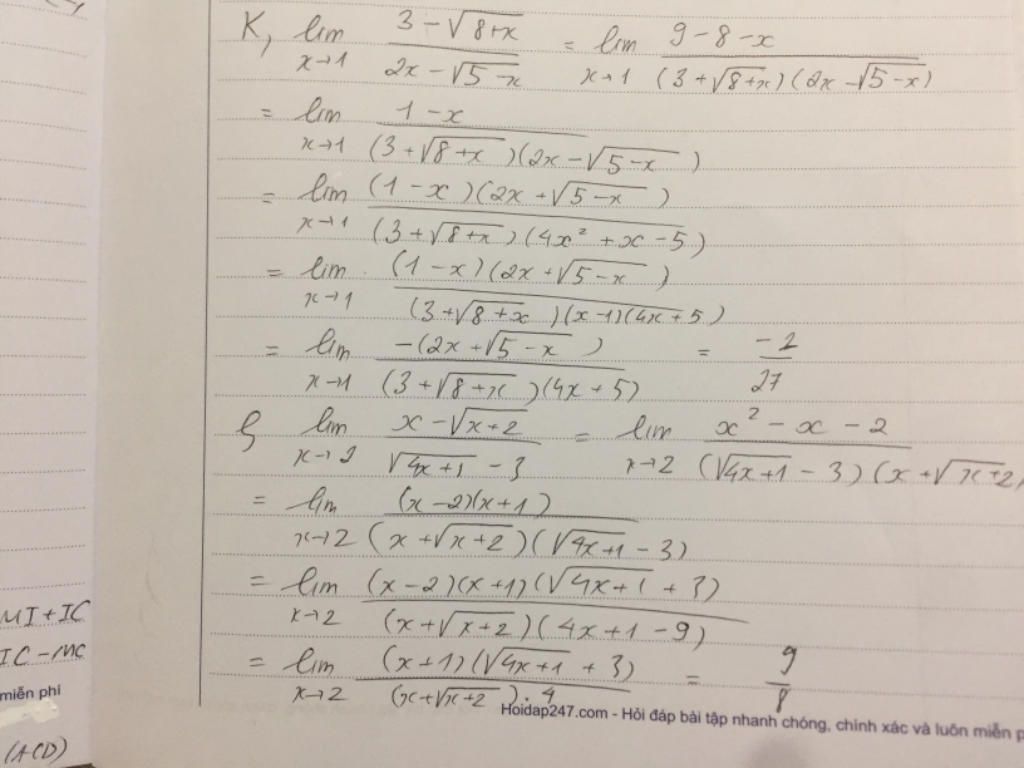 K, lim x→1 (3 - √(8+x))/(2x - √(5-x)) = lim x→1 (9 - 8 - x)/((3 + √(8+x))(2x - √(5-x)))
= lim x→1 (1 - x)/((3 + √(8+x))(2x - √(5-x)))
= lim x→1 ((1 - x)(2x + √(5-x)))/((3 + √(8+x))(4x² + x - 5))
= lim x→1 ((1 - x)(2x + √(5-x)))/((3 + √(8+x))(x - 1)(4x + 5))
= lim x→1 (-(2x + √(5-x)))/((3 + √(8+x))(4x + 5)) = -2/27
lim x→2 (x - √(x+2))/(√(4x+1) - 3) = lim x→2 (x² - x - 2)/((√(4x+1) - 3)(x + √(x+2)
= lim x→2 ((x - 2)(x + 1))/((x + √(x+2))(√(4x+1) - 3))
= lim x→2 ((x - 2)(x + 1)(√(4x+1) + 3))/((x + √(x+2))(4x + 1 - 9))
= lim x→2 ((x + 1)(√(4x+1) + 3))/((x + √(x+2)).4) = 9/8
MI + IC
IC - MC
miễn phí
(ACD)
Hoidap247.com - Hỏi đáp bài tập nhanh chóng, chính xác và luôn miễn p